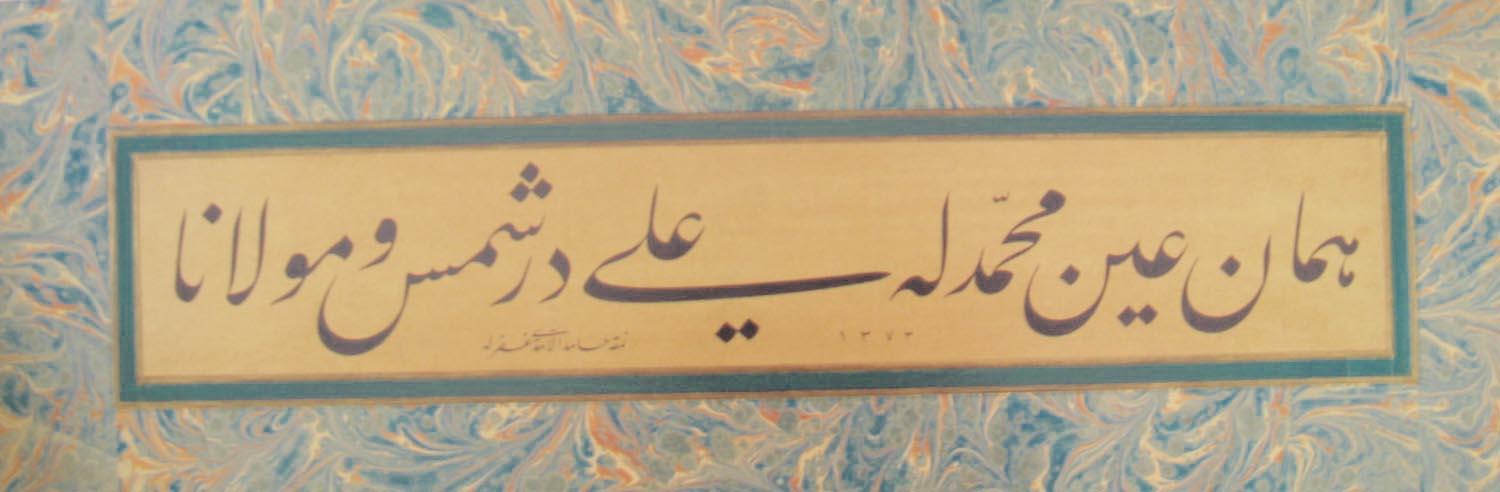 همان عین محمّد له علی در شمس و مولانا
۱۳۷۳
نمقه حامد الآمدی غفر له